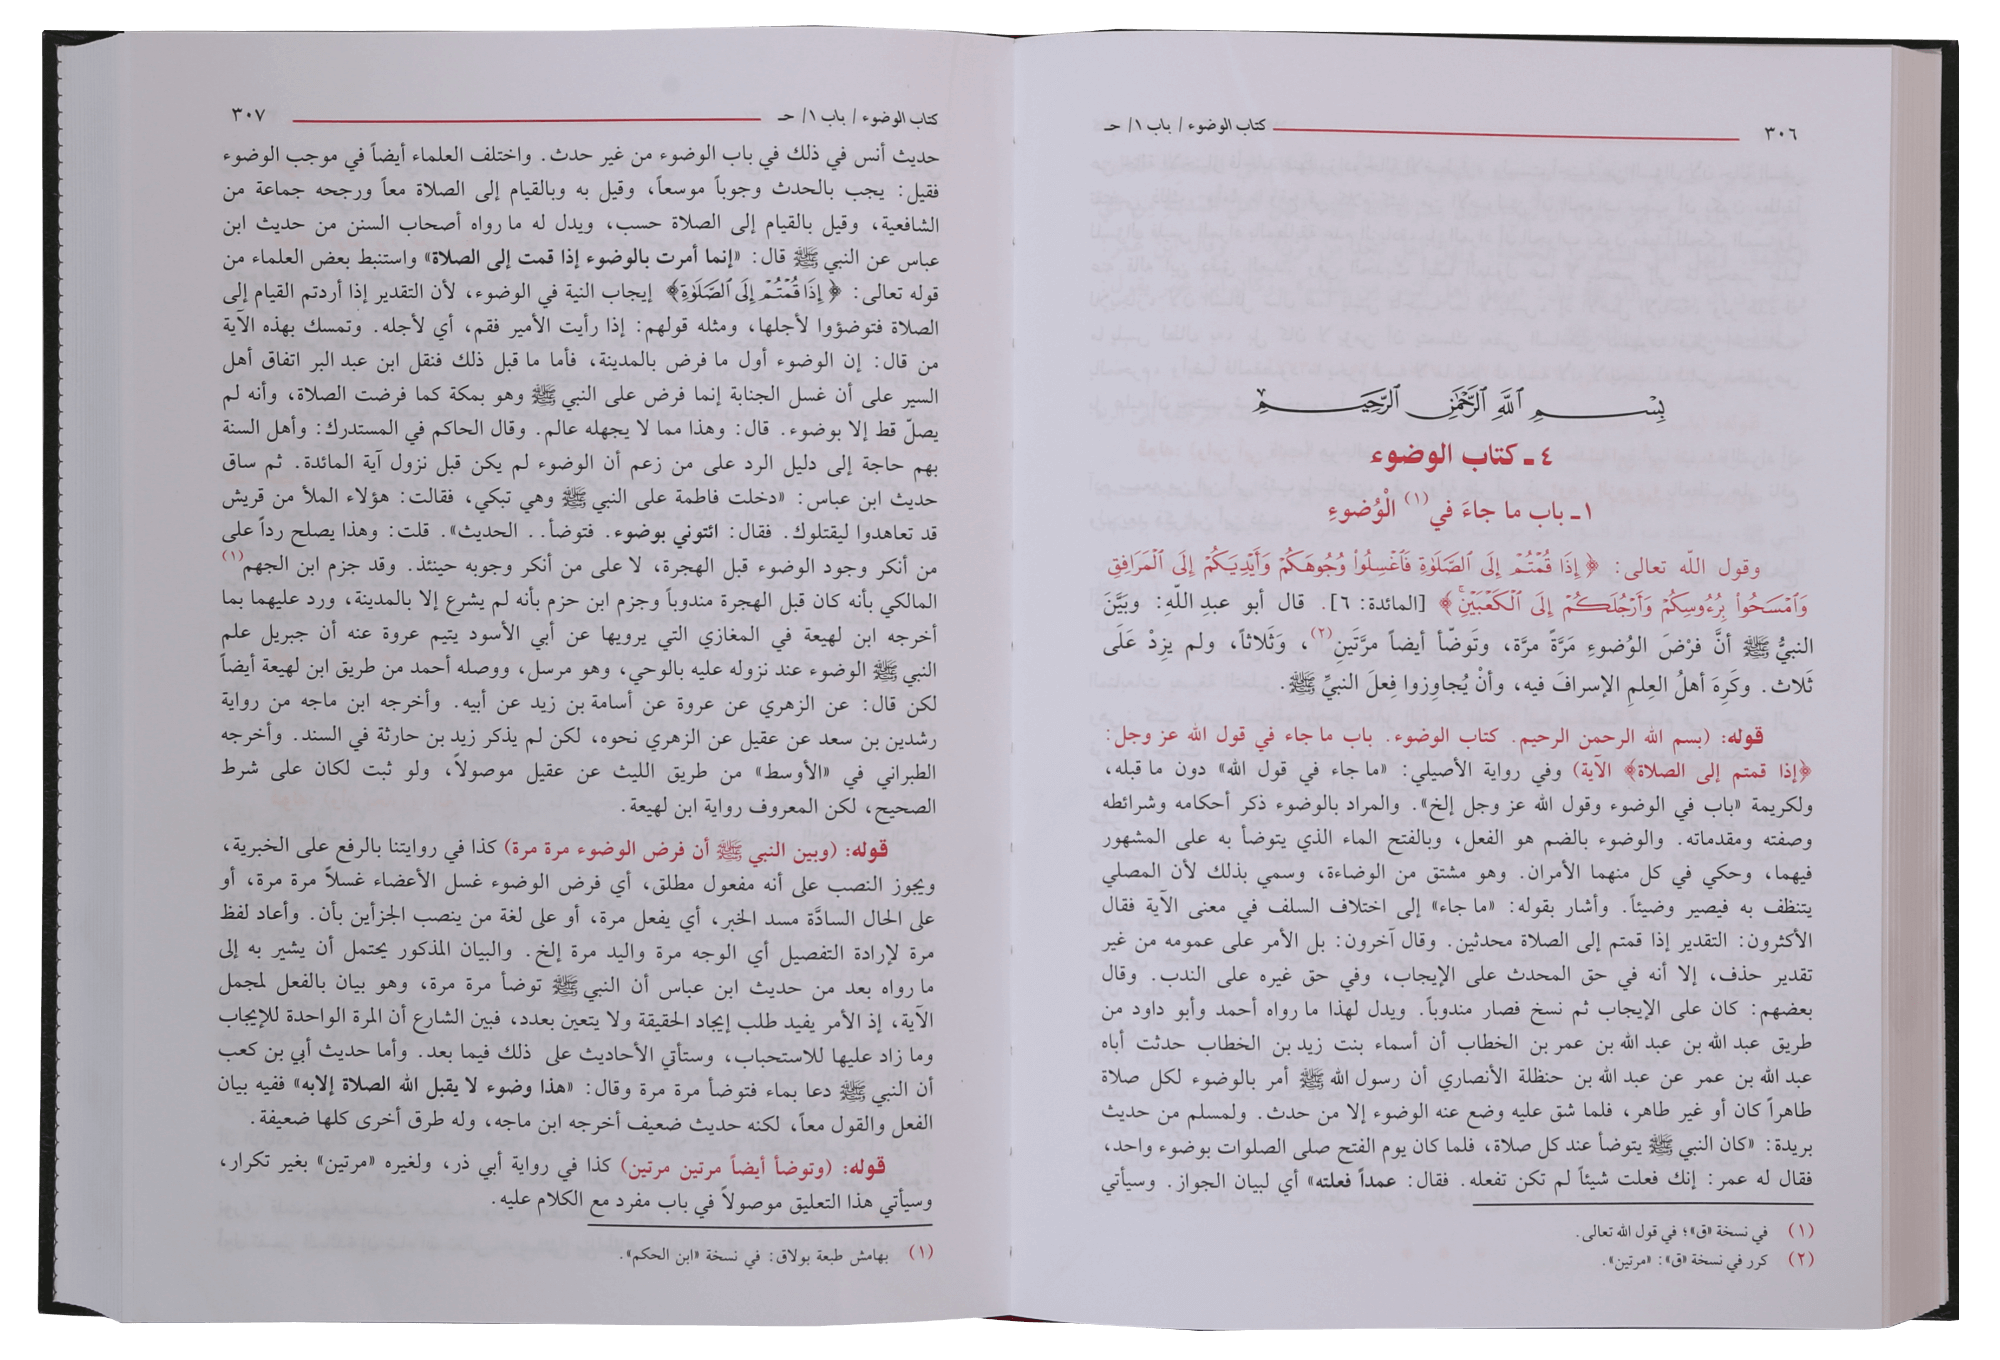 ٣٠٦
كتاب الوضوء / باب ١/ حـ
بِسْمِ ٱللَّهِ ٱلرَّحْمَٰنِ ٱلرَّحِيمِ
٤ ـ كتاب الوضوء
١ ـ باب ما جاءَ في(١) الْوُضوءِ
وقول اللّه تعالى: ﴿إِذَا قُمْتُمْ إِلَى ٱلصَّلَوٰةِ فَٱغْسِلُوا۟ وُجُوهَكُمْ وَأَيْدِيَكُمْ إِلَى ٱلْمَرَافِقِ
وَٱمْسَحُوا۟ بِرُءُوسِكُمْ وَأَرْجُلَكُمْ إِلَى ٱلْكَعْبَيْنِ﴾ [المائدة: ٦]. قال أبو عبدِ اللّهِ: وبَيَّنَ
النبيُّ ﷺ أنَّ فرْضَ الوُضوءِ مَرَّةً مرَّة، وتَوضّأ أيضاً مرَّتَينِ(٢)، وَثَلاثاً، ولم يزِدْ عَلَى
ثَلاث. وكَرِهَ أهلُ العِلمِ الإسرافَ فيه، وأنْ يُجاوِزوا فِعلَ النبيِّ ﷺ.
قوله: (بسم الله الرحمن الرحيم. كتاب الوضوء. باب ما جاء في قول الله عز وجل:
﴿إذا قمتم إلى الصلاة﴾ الآية) وفي رواية الأصيلي: «ما جاء في قول الله» دون ما قبله،
ولكريمة «باب في الوضوء وقول الله عز وجل إلخ». والمراد بالوضوء ذكر أحكامه وشرائطه
وصفته ومقدماته. والوضوء بالضم هو الفعل، وبالفتح الماء الذي يتوضأ به على المشهور
فيهما، وحكي في كل منهما الأمران. وهو مشتق من الوضاءة، وسمي بذلك لأن المصلي
يتنظف به فيصير وضيئاً. وأشار بقوله: «ما جاء» إلى اختلاف السلف في معنى الآية فقال
الأكثرون: التقدير إذا قمتم إلى الصلاة محدثين. وقال آخرون: بل الأمر على عمومه من غير
تقدير حذف، إلا أنه في حق المحدث على الإيجاب، وفي حق غيره على الندب. وقال
بعضهم: كان على الإيجاب ثم نسخ فصار مندوباً. ويدل لهذا ما رواه أحمد وأبو داود من
طريق عبد الله بن عبد الله بن عمر بن الخطاب أن أسماء بنت زيد بن الخطاب حدثت أباه
عبد الله بن عمر عن عبد الله بن حنظلة الأنصاري أن رسول الله ﷺ أمر بالوضوء لكل صلاة
طاهراً كان أو غير طاهر، فلما شق عليه وضع عنه الوضوء إلا من حدث. ولمسلم من حديث
بريدة: «كان النبي ﷺ يتوضأ عند كل صلاة، فلما كان يوم الفتح صلى الصلوات بوضوء واحد،
فقال له عمر: إنك فعلت شيئاً لم تكن تفعله. فقال: عمداً فعلته» أي لبيان الجواز. وسيأتي
(١) في نسخة «ق»؛ في قول الله تعالى.
(٢) كرر في نسخة «ق»: «مرتين».
كتاب الوضوء / باب ١/ حـ
٣٠٧
حديث أنس في ذلك في باب الوضوء من غير حدث. واختلف العلماء أيضاً في موجب الوضوء
فقيل: يجب بالحدث وجوباً موسعاً، وقيل به وبالقيام إلى الصلاة معاً ورجحه جماعة من
الشافعية، وقيل بالقيام إلى الصلاة حسب، ويدل له ما رواه أصحاب السنن من حديث ابن
عباس عن النبي ﷺ قال: «إنما أمرت بالوضوء إذا قمت إلى الصلاة» واستنبط بعض العلماء من
قوله تعالى: ﴿إِذَا قُمْتُمْ إِلَى ٱلصَّلَوٰةِ﴾ إيجاب النية في الوضوء، لأن التقدير إذا أردتم القيام إلى
الصلاة فتوضؤوا لأجلها، ومثله قولهم: إذا رأيت الأمير فقم، أي لأجله. وتمسك بهذه الآية
من قال: إن الوضوء أول ما فرض بالمدينة، فأما ما قبل ذلك فنقل ابن عبد البر اتفاق أهل
السير على أن غسل الجنابة إنما فرض على النبي ﷺ وهو بمكة كما فرضت الصلاة، وأنه لم
يصلّ قط إلا بوضوء. قال: وهذا مما لا يجهله عالم. وقال الحاكم في المستدرك: وأهل السنة
بهم حاجة إلى دليل الرد على من زعم أن الوضوء لم يكن قبل نزول آية المائدة. ثم ساق
حديث ابن عباس: «دخلت فاطمة على النبي ﷺ وهي تبكي، فقالت: هؤلاء الملأ من قريش
قد تعاهدوا ليقتلوك. فقال: ائتوني بوضوء. فتوضأ.. الحديث». قلت: وهذا يصلح رداً على
من أنكر وجود الوضوء قبل الهجرة، لا على من أنكر وجوبه حينئذ. وقد جزم ابن الجهم(١)
المالكي بأنه كان قبل الهجرة مندوباً وجزم ابن حزم بأنه لم يشرع إلا بالمدينة، ورد عليهما بما
أخرجه ابن لهيعة في المغازي التي يرويها عن أبي الأسود يتيم عروة عنه أن جبريل علم
النبي ﷺ الوضوء عند نزوله عليه بالوحي، وهو مرسل، ووصله أحمد من طريق ابن لهيعة أيضاً
لكن قال: عن الزهري عن عروة عن أسامة بن زيد عن أبيه. وأخرجه ابن ماجه من رواية
رشدين بن سعد عن عقيل عن الزهري نحوه، لكن لم يذكر زيد بن حارثة في السند. وأخرجه
الطبراني في «الأوسط» من طريق الليث عن عقيل موصولاً، ولو ثبت لكان على شرط
الصحيح، لكن المعروف رواية ابن لهيعة.
قوله: (وبين النبي ﷺ أن فرض الوضوء مرة مرة) كذا في روايتنا بالرفع على الخبرية،
ويجوز النصب على أنه مفعول مطلق، أي فرض الوضوء غسل الأعضاء غسلاً مرة مرة، أو
على الحال السادَّة مسد الخبر، أي يفعل مرة، أو على لغة من ينصب الجزأين بأن. وأعاد لفظ
مرة لإرادة التفصيل أي الوجه مرة واليد مرة إلخ. والبيان المذكور يحتمل أن يشير به إلى
ما رواه بعد من حديث ابن عباس أن النبي ﷺ توضأ مرة مرة، وهو بيان بالفعل لمجمل
الآية، إذ الأمر يفيد طلب إيجاد الحقيقة ولا يتعين بعدد، فبين الشارع أن المرة الواحدة للإيجاب
وما زاد عليها للاستحباب، وستأتي الأحاديث على ذلك فيما بعد. وأما حديث أبي بن كعب
أن النبي ﷺ دعا بماء فتوضأ مرة مرة وقال: «هذا وضوء لا يقبل الله الصلاة إلابه» ففيه بيان
الفعل والقول معاً، لكنه حديث ضعيف أخرجه ابن ماجه، وله طرق أخرى كلها ضعيفة.
قوله: (وتوضأ أيضاً مرتين مرتين) كذا في رواية أبي ذر، ولغيره «مرتين» بغير تكرار،
وسيأتي هذا التعليق موصولاً في باب مفرد مع الكلام عليه.
(١) بهامش طبعة بولاق: في نسخة «ابن الحكم».